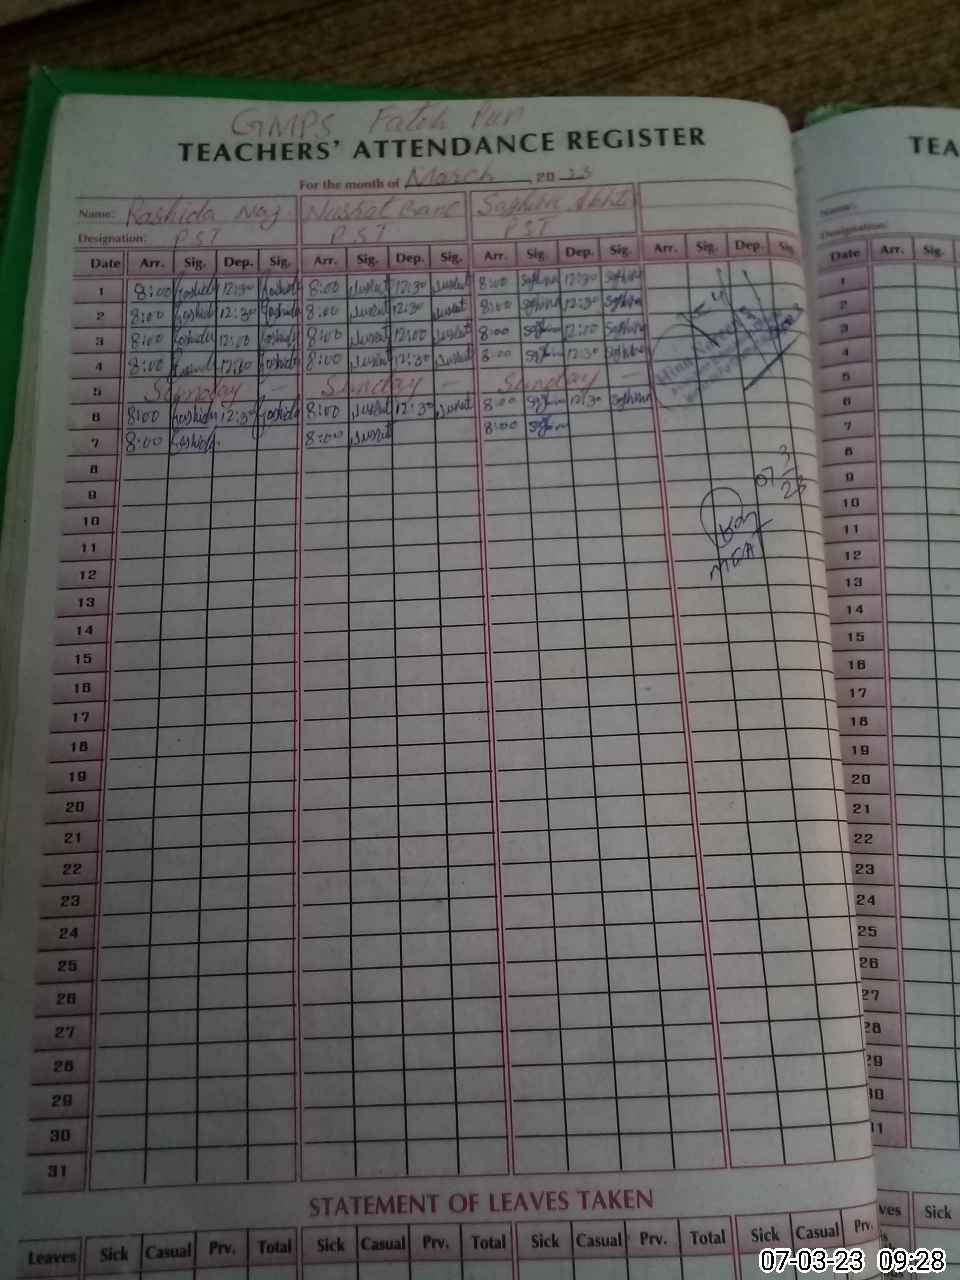 GMPS Fateh Pur
TEACHERS' ATTENDANCE REGISTER
TEA
For the month of March 20 23
Name: Rashida Naz Nusrat Bano Saghira
Designation: PST PST PST
Date Arr. Sig. Dep. Sig. Arr. Sig. Dep. Sig. Arr. Sig. Dep. Sig. Arr. Sig. Dep. Sig. Date Arr. Sig.
1 8:00 Rashida 12:30 Rashida 8:00 Nusrat 12:30 Nusrat 8:00 Saghira 12:30 Saghira 1
2 8:00 Rashida 12:30 Rashida 8:00 Nusrat 12:30 Nusrat 8:00 Saghira 12:30 Saghira 2
3 8:00 Rashida 12:00 Rashida 8:00 Nusrat 12:00 Nusrat 8:00 Saghira 12:00 Saghira 3
4 8:00 Rashida 12:30 Rashida 8:00 Nusrat 12:30 Nusrat 8:00 Saghira 12:30 Saghira 4
5 Sunday - Sunday - Sunday - 5
6 8:00 Rashida 12:30 Rashida 8:00 Nusrat 12:30 Nusrat 8:00 Saghira 12:30 Saghira 6
7 8:00 Rashida 8:00 Nusrat 8:00 Saghira 7
8 8
9 07 3 23 9
10 10
11 11
12 MEA 12
13 13
14 14
15 15
16 16
17 17
18 18
19 19
20 20
21 21
22 22
23 23
24 24
25 25
26 26
27 27
28 28
29 29
30 30
31 31
STATEMENT OF LEAVES TAKEN
Leaves Sick Casual Prv. Total Sick Casual Prv. Total Sick Casual Prv. Total Sick Casual Prv. Sick
07-03-23 09:28